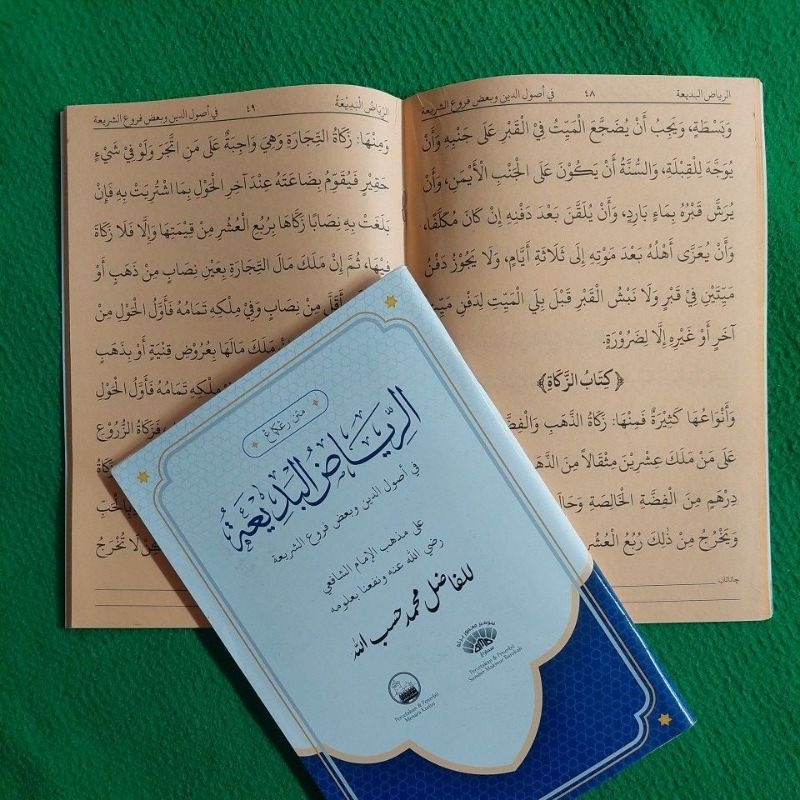 الرياض البديعة ٤٨ في أصول الدين وبعض فروع الشريعة
وَبَسْطَةٍ، وَيَجِبُ أَنْ يُضْجَعَ الْمَيِّتُ فِيْ الْقَبْرِ عَلَى جَنْبِهِ وَأَنْ
يُوَجَّهَ لِلْقِبْلَةِ، وَالسُّنَّةُ أَنْ يَكُوْنَ عَلَى الْجَنْبِ الْأَيْمَنِ، وَأَنْ
يُرَشَّ قَبْرُهُ بِمَاءٍ بَارِدٍ، وَأَنْ يُلَقَّنَ بَعْدَ دَفْنِهِ إِنْ كَانَ مُكَلَّفًا،
وَأَنْ يُعَزَّى أَهْلُهُ بَعْدَ مَوْتِهِ إِلَى ثَلَاثَةِ أَيَّامٍ، وَلَا يَجُوْزُ دَفْنُ
مَيِّتَيْنِ فِيْ قَبْرٍ وَلَا نَبْشُ الْقَبْرِ قَبْلَ بِلَى الْمَيِّتِ لِدَفْنِ مَيِّتٍ
آخَرَ أَوْ غَيْرِهِ إِلَّا لِضَرُوْرَةٍ.
﴿كِتَابُ الزَّكَاةِ﴾
وَأَنْوَاعُهَا كَثِيْرَةٌ فَمِنْهَا: زَكَاةُ الذَّهَبِ وَالْفِضَّةِ
عَلَى مَنْ مَلَكَ عِشْرِيْنَ مِثْقَالًا مِنَ الذَّهَبِ
دِرْهَمٍ مِنَ الْفِضَّةِ الْخَالِصَةِ
وَيُخْرِجُ مِنْ ذٰلِكَ رُبُعَ الْعُشْرِ
چاتاتن
الرِّيَاضُ الْبَدِيْعَةُ ٤٩ في أصول الدين وبعض فروع الشريعة
وَمِنْهَا: زَكَاةُ التِّجَارَةِ وَهِيَ وَاجِبَةٌ عَلَى مَنِ اتَّجَرَ وَلَوْ فِيْ شَيْءٍ
حَقِيْرٍ فَيُقَوِّمُ بِضَاعَتَهُ عِنْدَ آخِرِ الْحَوْلِ بِمَا اشْتُرِيَتْ بِهِ فَإِنْ
بَلَغَتْ بِهِ نِصَابًا زَكَّاهَا بِرُبُعِ الْعُشْرِ مِنْ قِيْمَتِهَا وَإِلَّا فَلَا زَكَاةَ
فِيْهَا، ثُمَّ إِنْ مَلَكَ مَالَ التِّجَارَةِ بِعَيْنِ نِصَابٍ مِنْ ذَهَبٍ أَوْ
أَقَلَّ مِنْ نِصَابٍ وَفِيْ مِلْكِهِ تَمَامُهُ فَأَوَّلُ الْحَوْلِ مِنْ
مَلَكَ مَالَهَا بِعُرُوْضِ قِنْيَةٍ أَوْ بِذَهَبٍ
مِلْكِهِ تَمَامُهُ فَأَوَّلُ الْحَوْلِ
فَزَكَاةُ الزُّرُوْعِ
لَا تُخْرَجُ
الرِّيَاضُ الْبَدِيْعَةُ
في أصول الدين وبعض فروع الشريعة
على مذهب الإمام الشافعي
رضي الله عنه ونفعنا بعلومه
للفاضل محمد حسب الله
Percetakan & Penerbit
Menara Kudus
Percetakan & Penerbit
Sumber Makmur Barokah